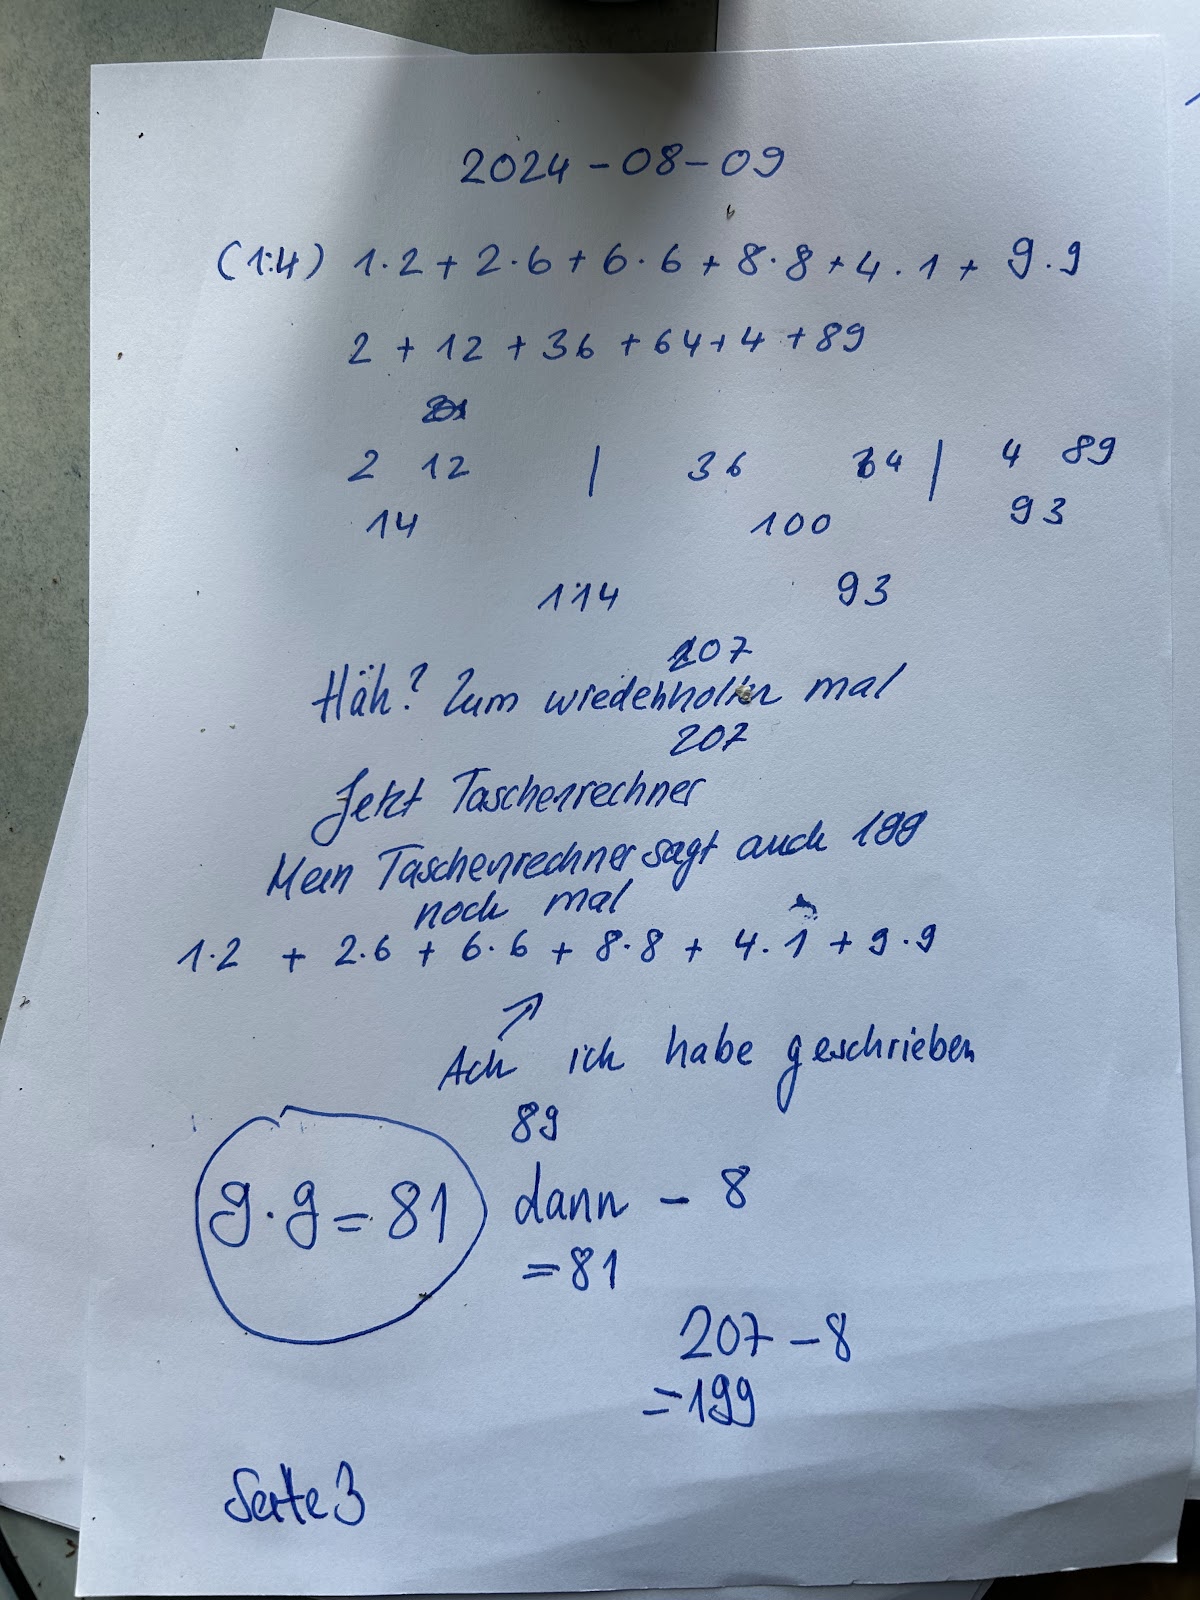 2024-08-09
(1:4) 1·2 + 2·6 + 6·6 + 8·8 + 4·1 + 9·9
2 + 12 + 36 + 64 + 4 + 89
2 12 | 36 64 | 4 89
14 100 93
114 93
207
Häh? Zum wiederholten mal
207
Jetzt Taschenrechner
Mein Taschenrechner sagt auch 199
noch mal
1·2 + 2·6 + 6·6 + 8·8 + 4·1 + 9·9
↗
Ach ich habe geschrieben
89
9·9=81 dann - 8
=81
207 - 8
=199
Seite 3